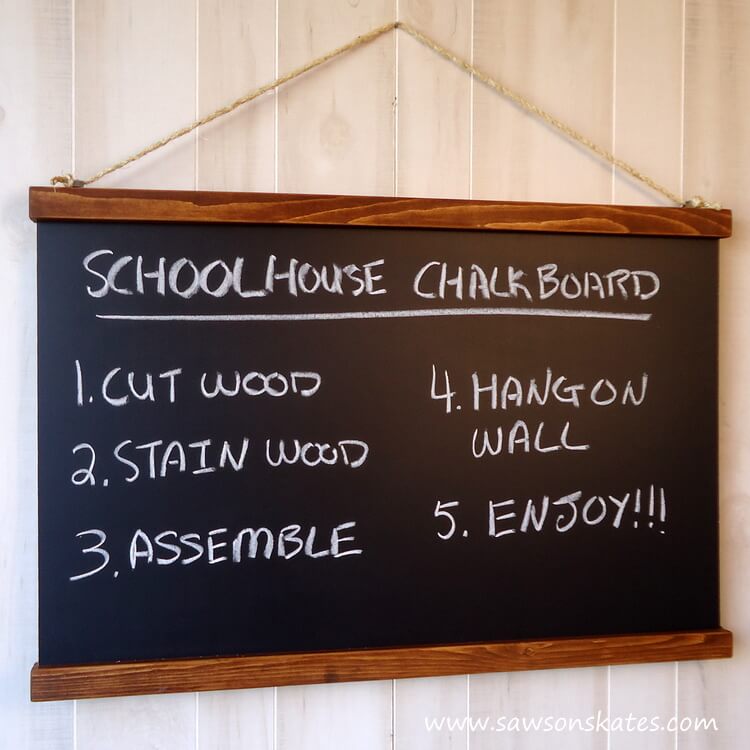 SCHOOLHOUSE CHALKBOARD
1. CUT WOOD
2. STAIN WOOD
3. ASSEMBLE
4. HANG ON
WALL
5. ENJOY!!!
www.sawsonskates.com